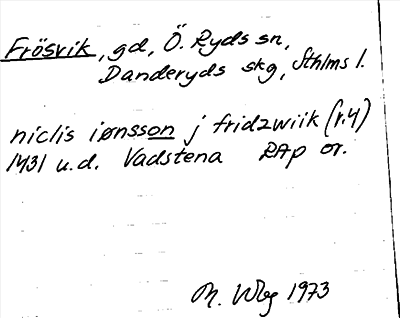 Frösvik, gd, Ö. Ryds sn,
Danderyds skg, Sthlms l.
niclis iønsson j fridzwiik (r.4)
1431 u.d. Vadstena RAp or.
M. Wbg 1973